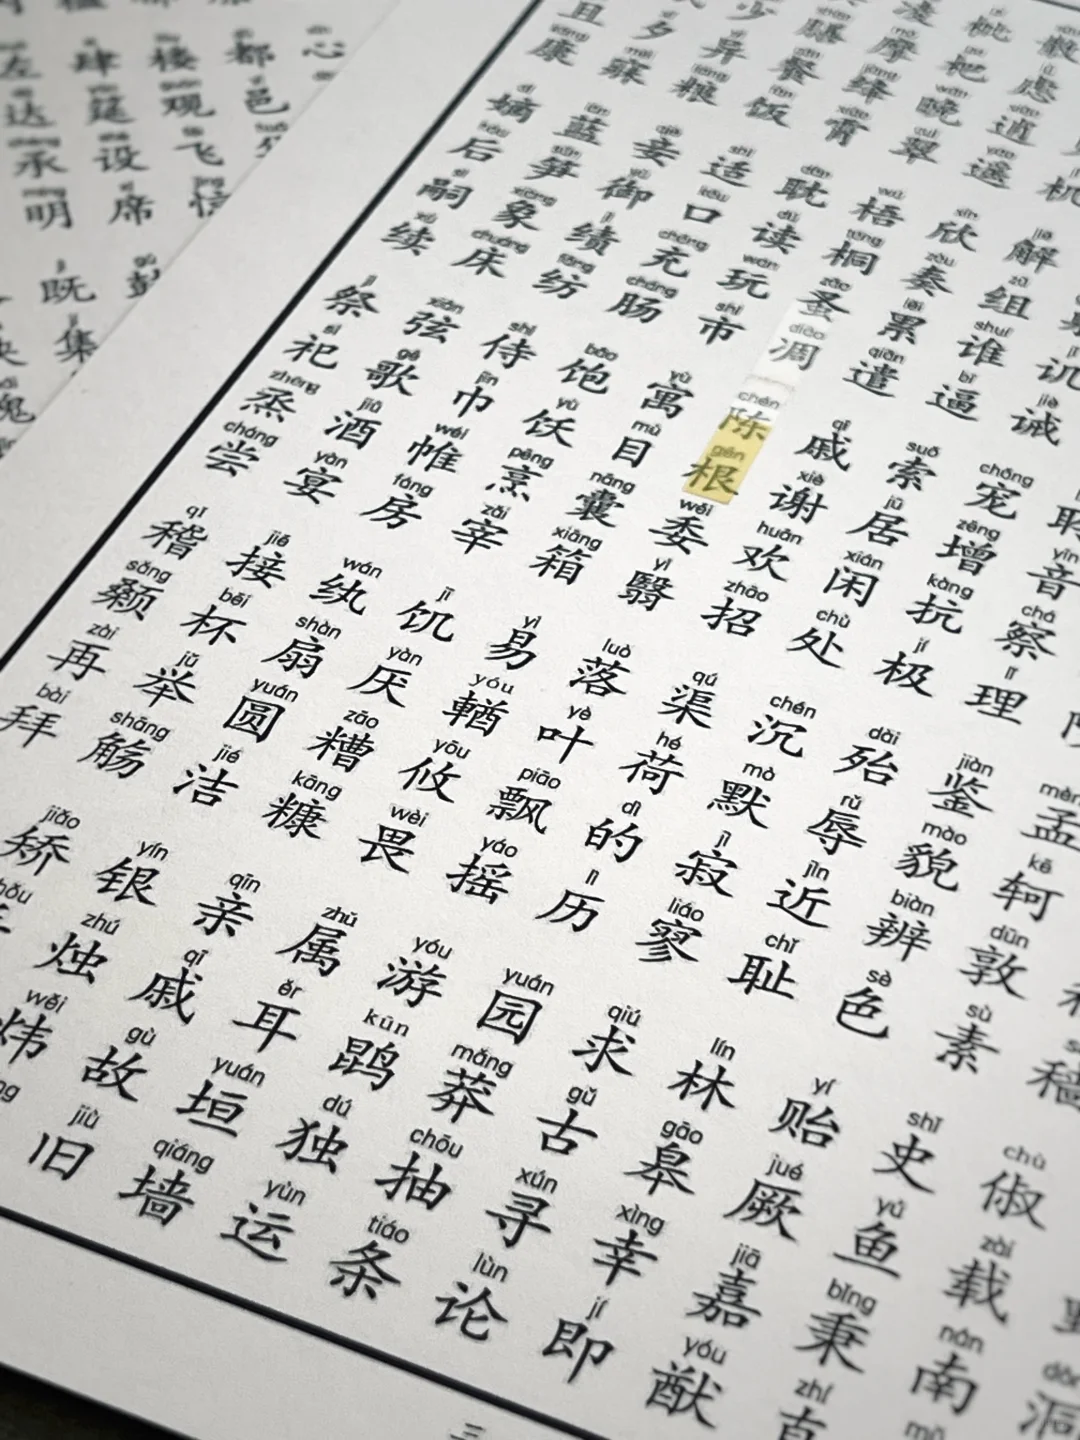 聆音察理鉴貌辨色贻厥嘉猷
讥诫宠增抗极殆辱近耻林皋幸即
机解组谁逼索居闲处沉默寂寥求古寻论
散虑逍遥欣奏累遣戚谢欢招渠荷的历园莽抽条
枇杷晚翠梧桐蚤凋陈根委翳落叶飘摇游鹍独运
凌摩绛霄耽读玩市寓目囊箱易輶攸畏属耳垣墙
膳餐饭适口充肠饱饫烹宰饥厌糟糠亲戚故旧
少异粮妾御绩纺侍巾帷房纨扇圆洁银烛炜
夕寐蓝笋象床弦歌酒宴接杯举觞矫
且康嫡后嗣续祭祀烝尝稽颡再拜
孟轲敦素史鱼秉直
俶载南
三
心
都邑
楼观飞
肆筵设席
左达承明既集